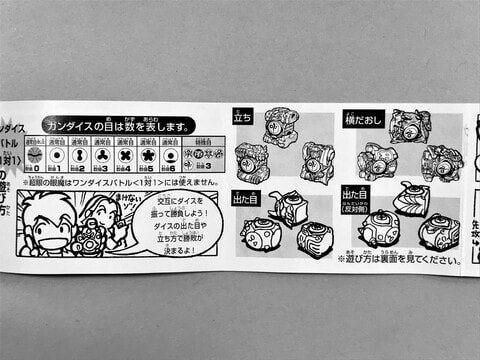 ンダイス
バトル
1対1〉
の遊び方
ガンダイスの目は数を表します。
通常目 通常目 通常目 通常目 通常目 特殊目
数 0 数 1 数 2 数 3 数 5 数 6 特殊 3
※超眼の眼魔はワンダイスバトル<1対1>には使えません。
まけないゾン!
交互にダイスを
振って勝負しよう!
ダイスの出た目や
立ち方で勝敗が
決まるよ!
立ち
横だおし
出た目
出た目
(反対側)
※遊び方は裏面を見てください。
先攻